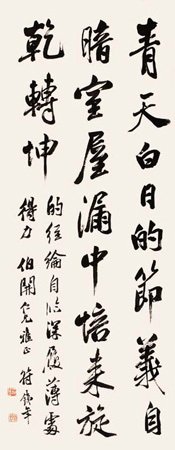 青天白日的節義自
暗室屋漏中培来旋
乾轉坤
的經綸自臨深履薄處
得力 伯開仁兄雅正 蔣鋤平